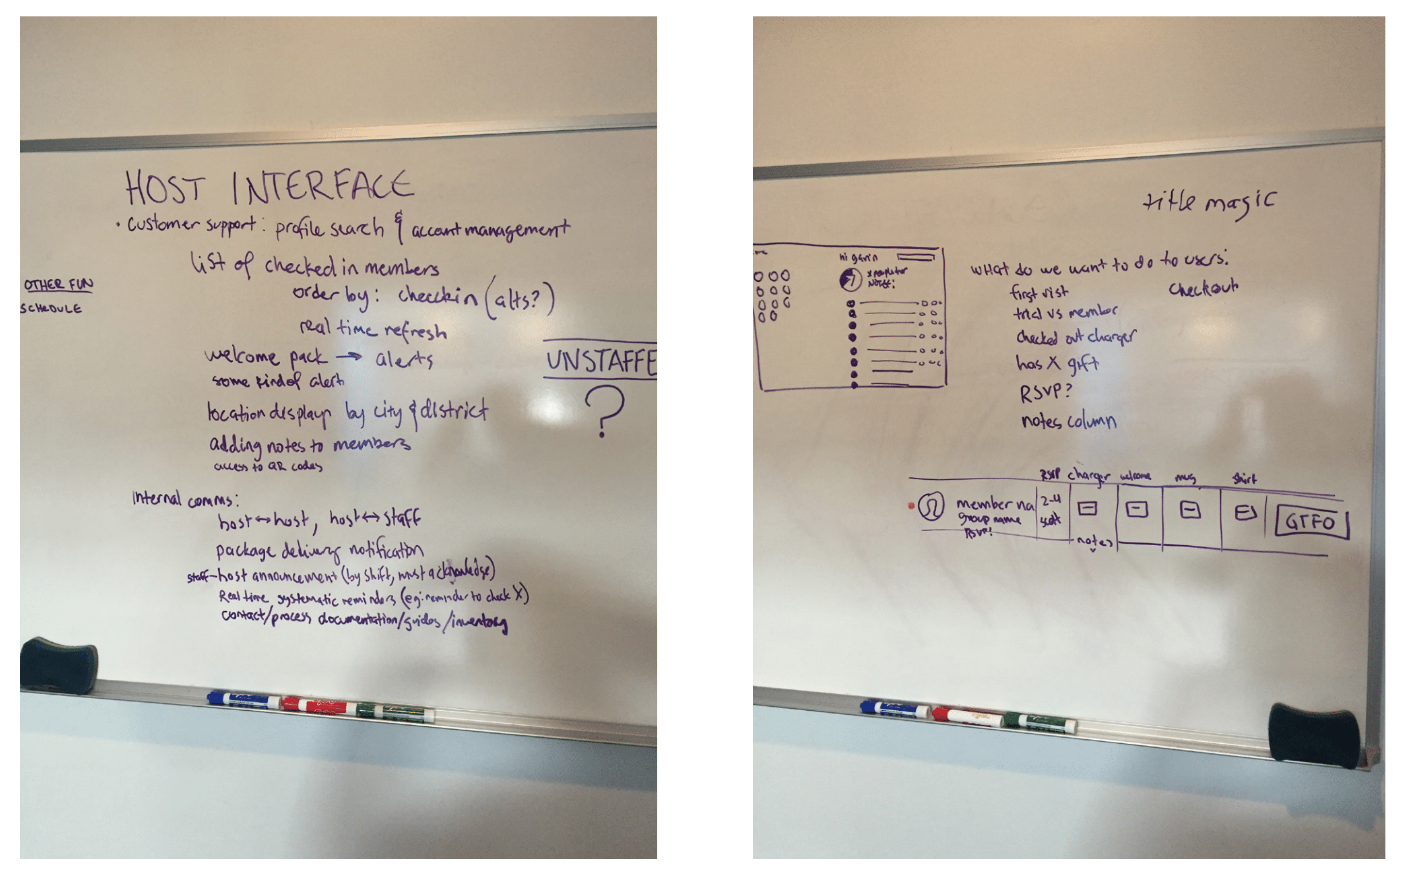 HOST INTERFACE
• Customer support: profile search & account management
list of checked in members
order by: checkin (alts?)
real time refresh
welcome pack → alerts
some kind of alert
location display by city & district
adding notes to members
access to QR codes
OTHER FUN
SCHEDULE
UNSTAFFE
?
Internal comms:
host↔host, host↔staff
package delivery notification
staff→host announcement (by shift, must acknowledge)
Real time systematic reminders (eg: reminder to check X)
contact/process documentation/guides/inventory
title magic
hi gavin
Notes:
What do we want to do to users:
first visit
checkout
trial vs member
checked out charger
has X gift
RSVP?
notes column
RSVP charger welcome mug shirt
member na
group name
RSVP!
2-4
notes
GTFO